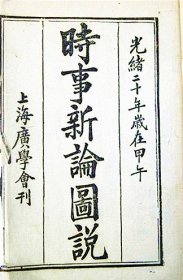 光緒二十年歲在甲午
時事新論圖說
上海廣學會刊